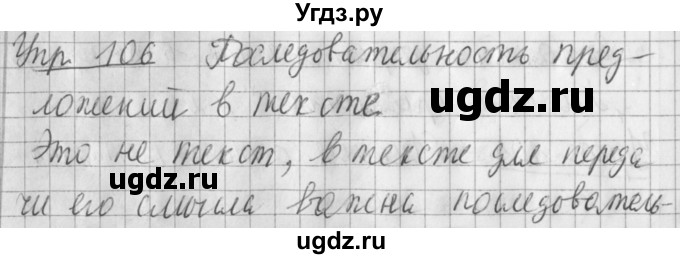 Угдз.ру
Упр. 106 Последовательность пред-
ложений в тексте.
Это не текст, в тексте для переда
чи его смысла важна последователь-
ugdz.ru
ugdz.ru
ugdz.ru
ugdz.ru